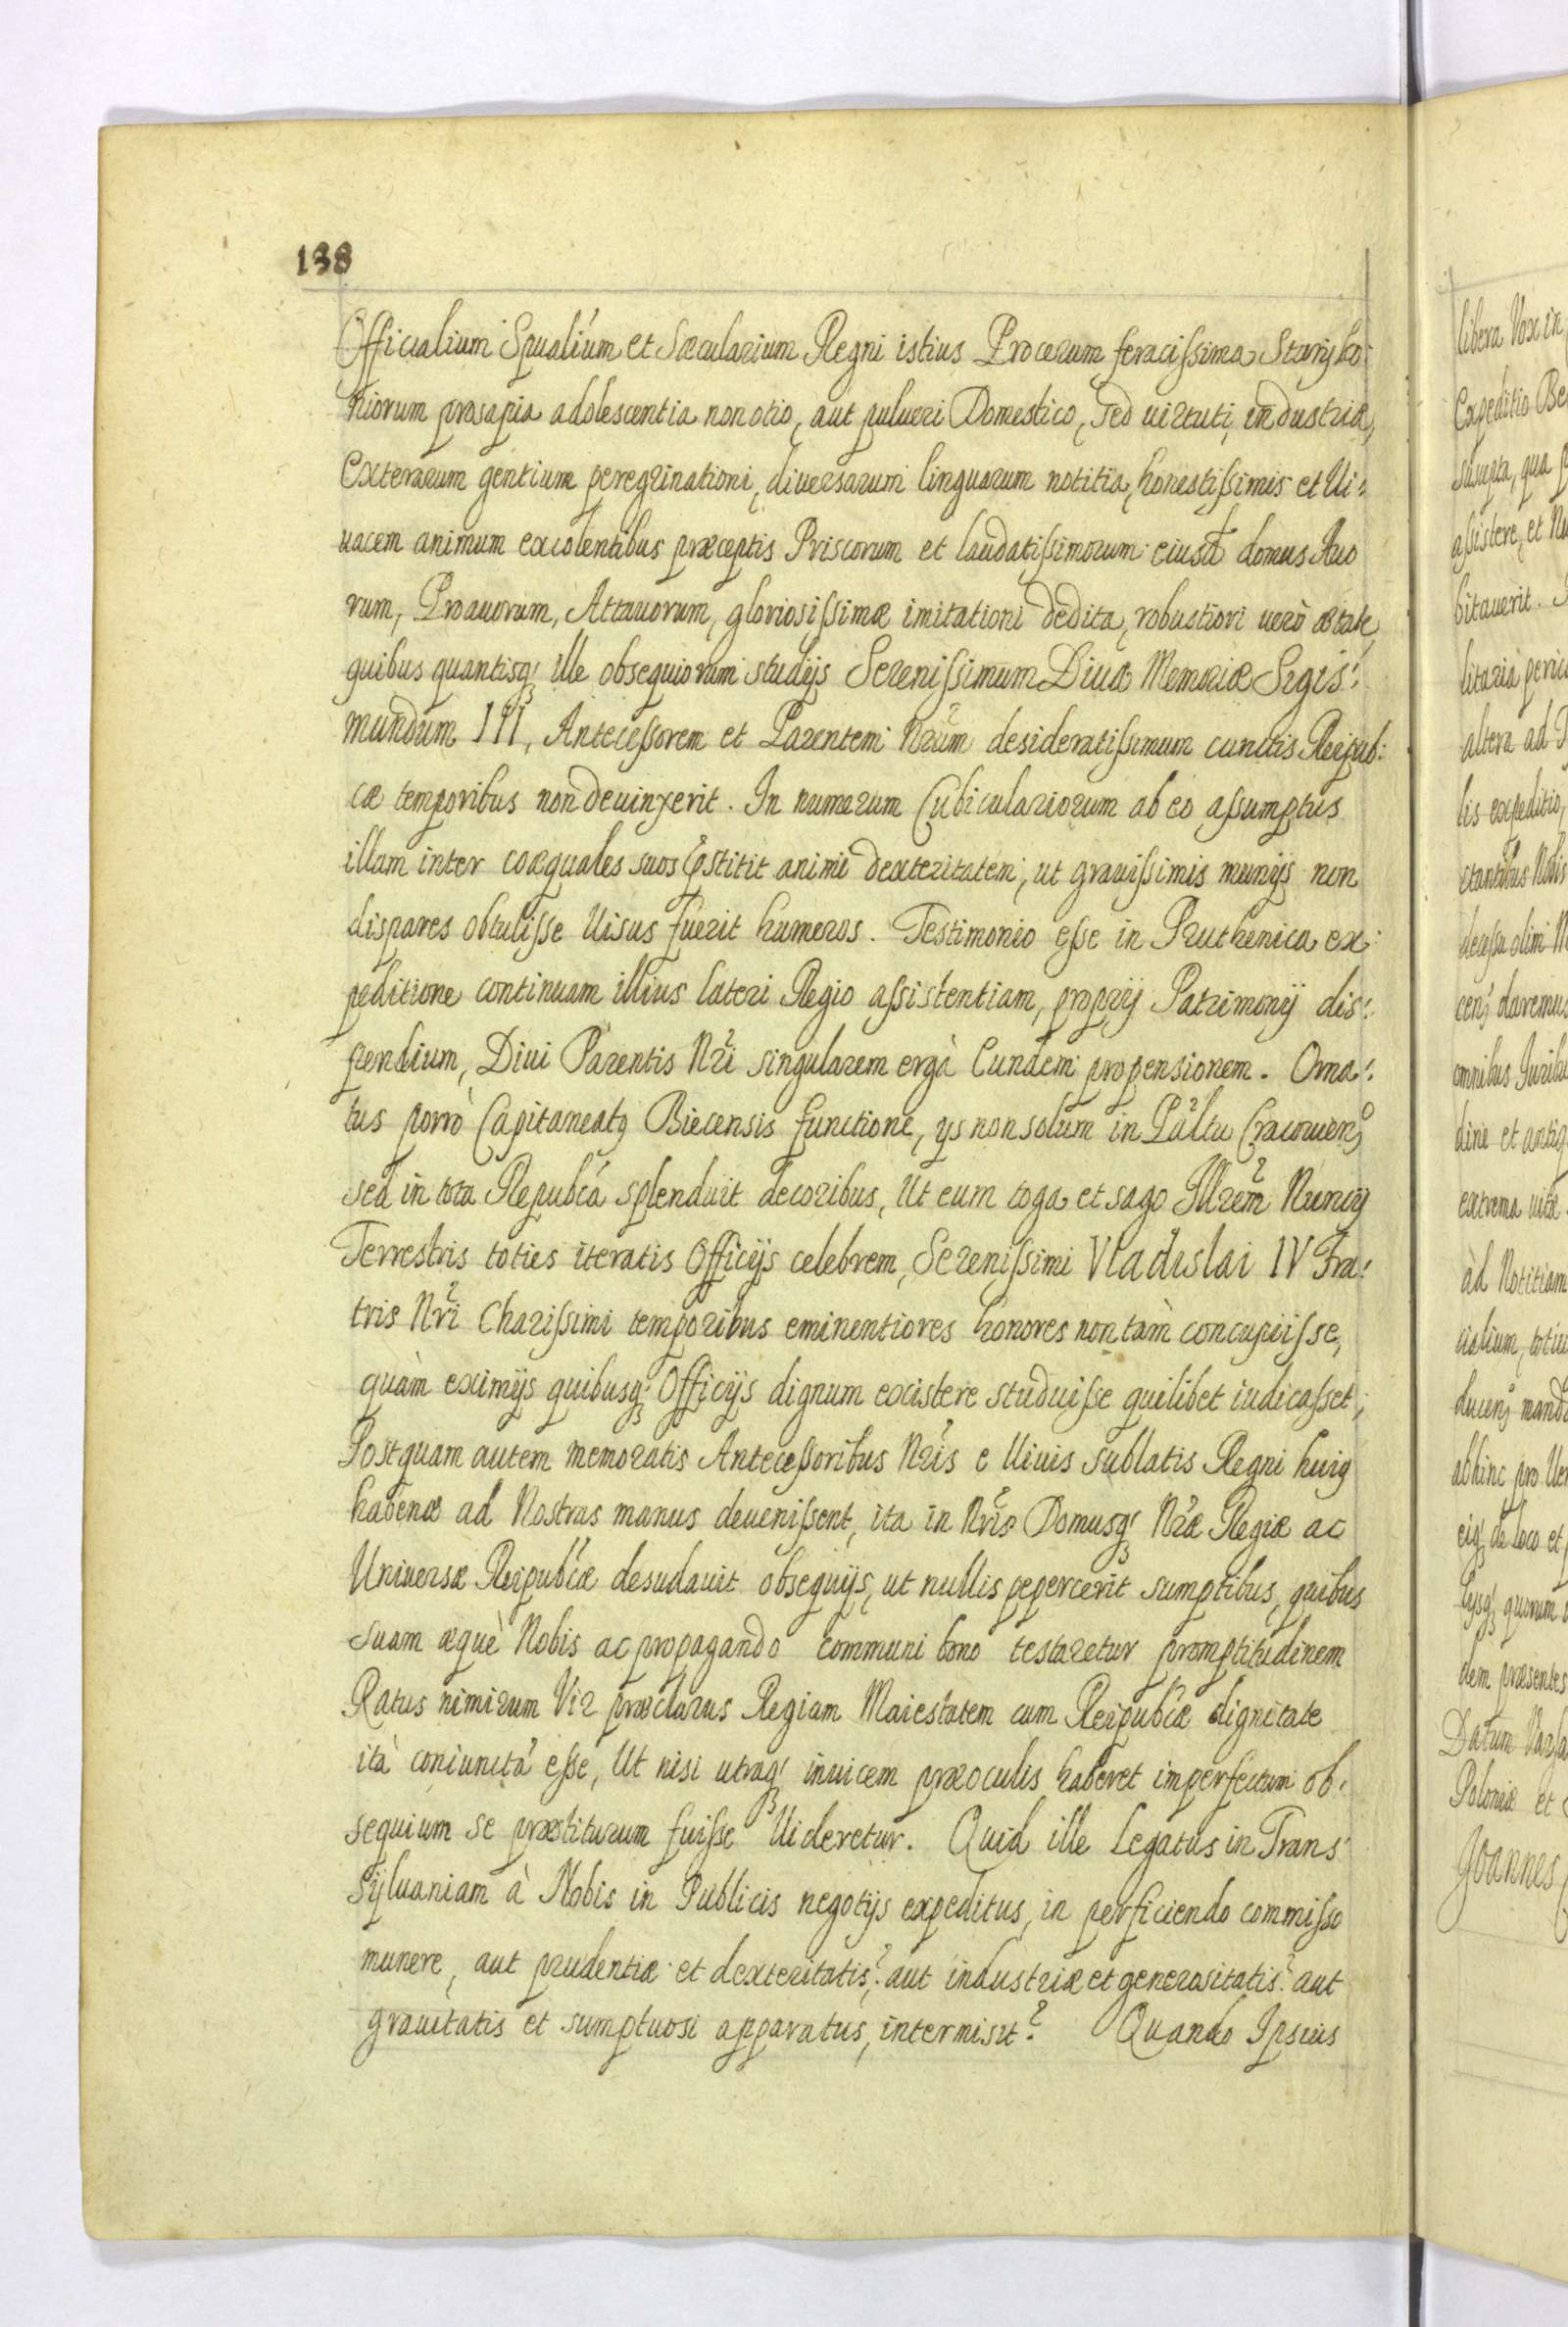 138
Officialium Spualiúm et Sæcularium Regni istius Procerum feracissima Staryko:
niorum prosapia adolescentia non otio, aut pulueri Domestico, sed uirtuti industriæ,
Exterarum gentium peregrinationi, diuersarum linguarum notitiæ, honestissimis et Ui:
uacem animum excolentibus præceptis Priscorum et laudatissimorum eiusd domus Auo
rum, Proauorum, Attauorum, gloriosissimæ imitationi dedita, robustiori uerò ætate
quibus quantisq; ille obsequiorum studijs Serenissimum Diuæ Memoriæ Sigis:
mundum III, Antecessorem et Parentem Nrūm desideratissimum cunctis Reipub:
cæ temporibus non deuinxerit. In numerum Cubiculariorum ab eo assumptus
illam inter coæquales suos præstitit animi dexteritatem, ut grauissimis munijs non
dispares obtulisse Uisus fuerit humeros. Testimonio esse in Pruthenica ex:
peditione continuam illius lateri Regio assistentiam, proprij Patrimonij dis:
pendium, Diui Parentis Nri singularem ergà Eundem propensionem. Orna:
tus porrò Capitaneatq Biecensis functione, ys non solum in Pāltu Cracouien;
sed in tota Republcá splenduit decoribus, Ut eum toga et sago Illrem Nuncij
Terrestris toties iteratis Officijs celebrem, Serenissimi Vladislai IV Fra:
tris Nri Charissimi temporibus eminentiores honores non tàm concupiisse,
quàm eximijs quibusq; Officijs dignum existere studuisse quilibet iudicasset;
Postquam autem memoratis Antecessoribus Nris e Uiuis sublatis Regni huiq
habenæ ad Nostras manus deuenissent, ita in Nris Domusq; Nræ Regiæ ac
Uniuersæ Reipublcæ desudauit obsequijs, ut nullis pepercerit sumptibus, quibus
suam æquè Nobis ac propagando communi bono testaretur promptitudinem
Ratus nimirum Vir præclarus Regiam Maiestatem cum Reipublcæ dignitate
ità coniunctá esse, Ut nisi utraq; inuicem præ oculis haberet imperfectum ob:
sequium se præstiturum fuisse Uideretur. Quid ille Legatus in Trans:
syluaniam à Nobis in Publicis negotijs expeditus, in perficiendo commisso
munere, aut prudentiæ et dexteritatis? aut industriæ et generositatis? aut
grauitatis et sumptuosi apparatus, intermisit? Quando Ipsius